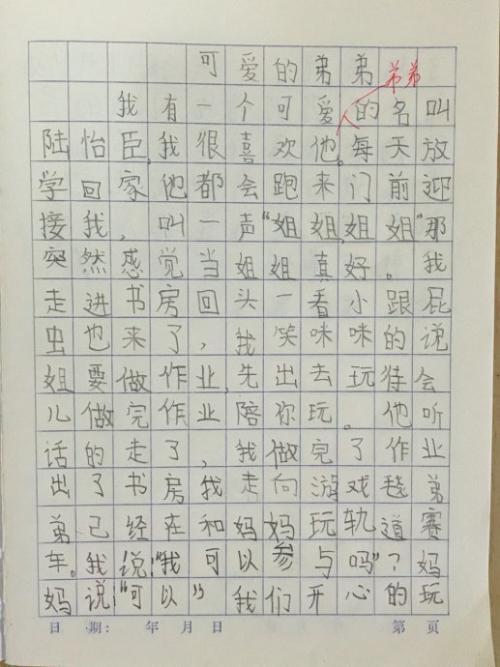 可爱的弟弟
弟弟
我有一个可爱的名叫
陆怡臣，我很喜欢他。每天放
学回家他都会跑来门前迎
接我，叫一声“姐姐，姐姐”那
突然感觉当姐姐真好。我
走进书房回头一看小跟屁
虫也来了，我笑咪咪的说
姐要做作业，先出去玩待会
儿做完作业陪你玩。他听
话的走了，我做完了作业
出了书房我走向游戏毯弟
弟已经在和妈妈玩轨道赛
车。我说：“我可以参与吗”？妈
妈说：“可以”我们开心的玩
日期： 年 月 日 第 页